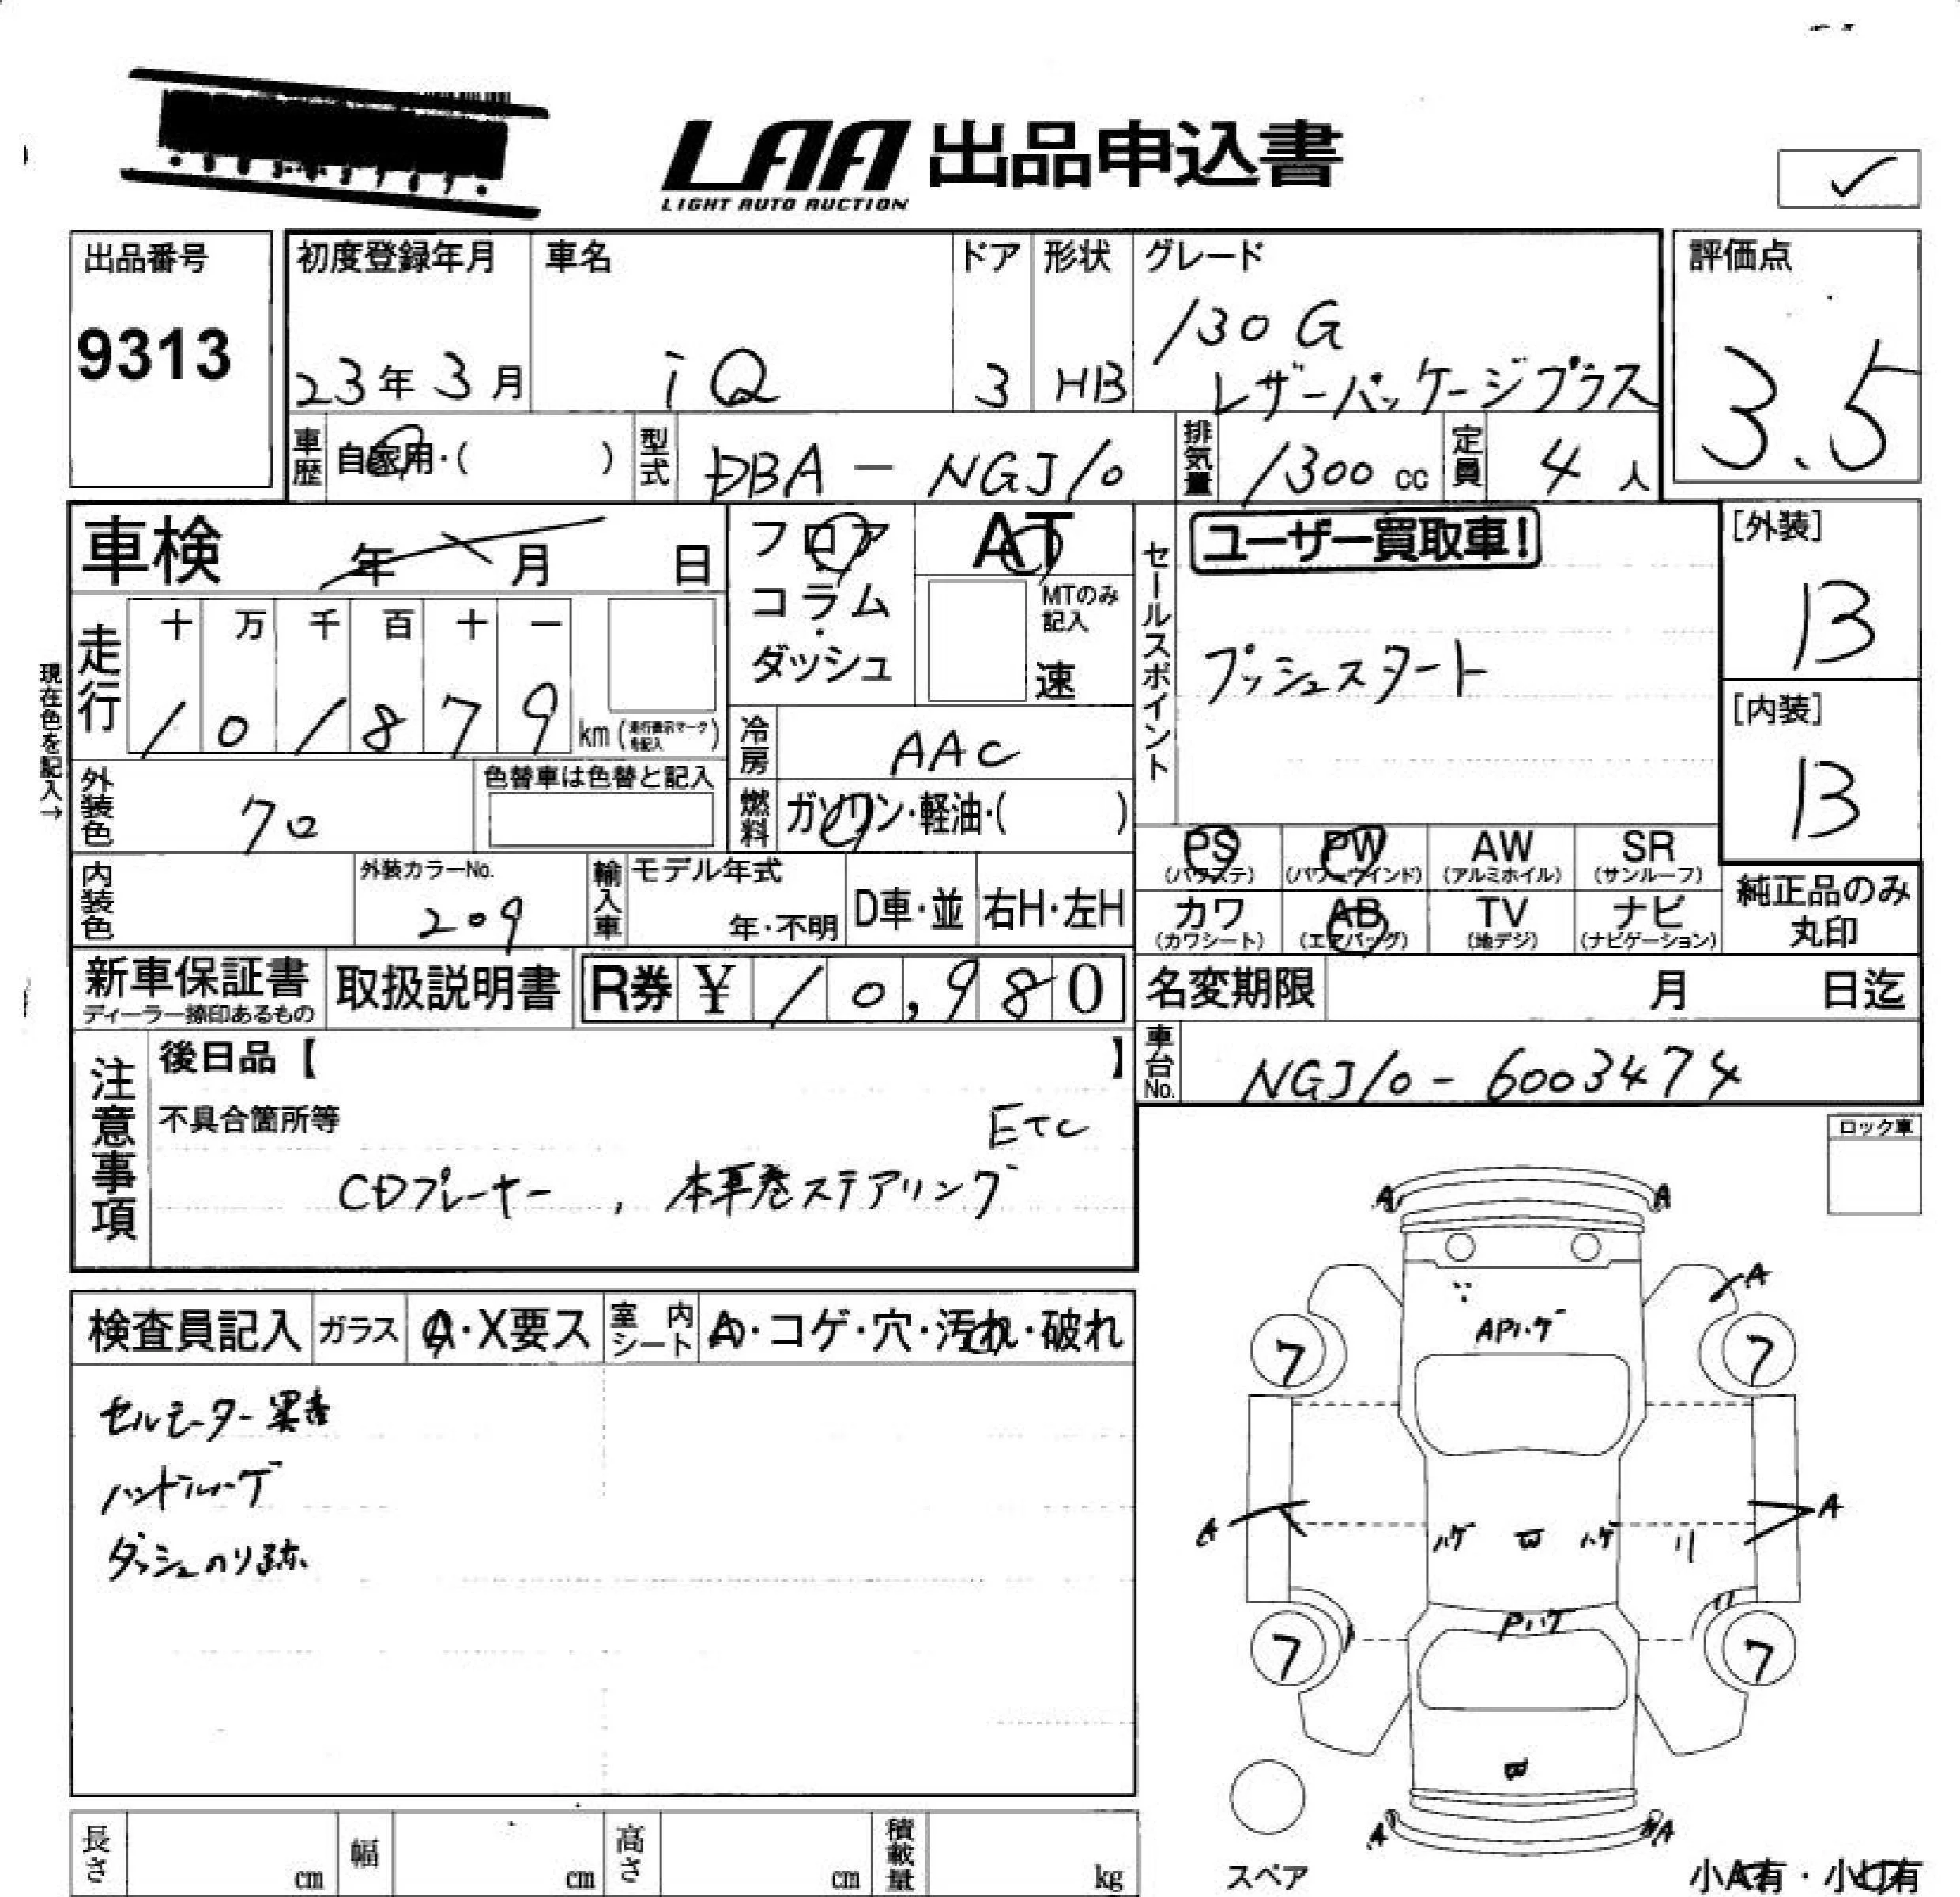 LAA 出品申込書
LIGHT AUTO AUCTION
出品番号
9313
初度登録年月
23年 3月
車名
iQ
ドア
3
形状
HB
グレード
130G
レザーパッケージプラス
評価点
3.5
車歴
自家用・( )
型式
DBA-NGJ10
排気量
1300 cc
定員
4 人
車検 年 月 日
フロア
コラム
・
ダッシュ
AT
MTのみ
記入
速
セールスポイント
ユーザー買取車!
プッシュスタート
[外装]
13
[内装]
13
現在色を記入→
走行
十 万 千 百 十 一
1 0 1 8 7 9 km (走行表示マークを記入)
冷房
AAC
外装色
クロ
色替車は色替と記入
燃料
ガソリン・軽油・( )
内装色
外装カラーNo.
209
輸入車
モデル年式
年・不明
D車・並
右H・左H
PS
(パワステ)
PW
(パワーウインド)
AW
(アルミホイル)
SR
(サンルーフ)
カワ
(カワシート)
AB
(エアバッグ)
TV
(地デジ)
ナビ
(ナビゲーション)
純正品のみ
丸印
新車保証書
ディーラー捺印あるもの
取扱説明書
R券 ¥ 10,980
名変期限 月 日迄
車台No.
NGJ10-6003474
注意事項
後日品【 】
不具合箇所等
ETC
CDプレーヤー , 本革巻ステアリング
ロック車
検査員記入
ガラス
A・X要ス
室内シート
A・コゲ・穴・汚れ・破れ
セルモーター異音
ハンドルハゲ
ダッシュのり跡
A A
A
APハゲ
7 7
A ハゲ B ハゲ リ A
Pハゲ
7 7
B
A A
スペア
小A有・小U有
長さ cm
幅 cm
高さ cm
積載量 kg